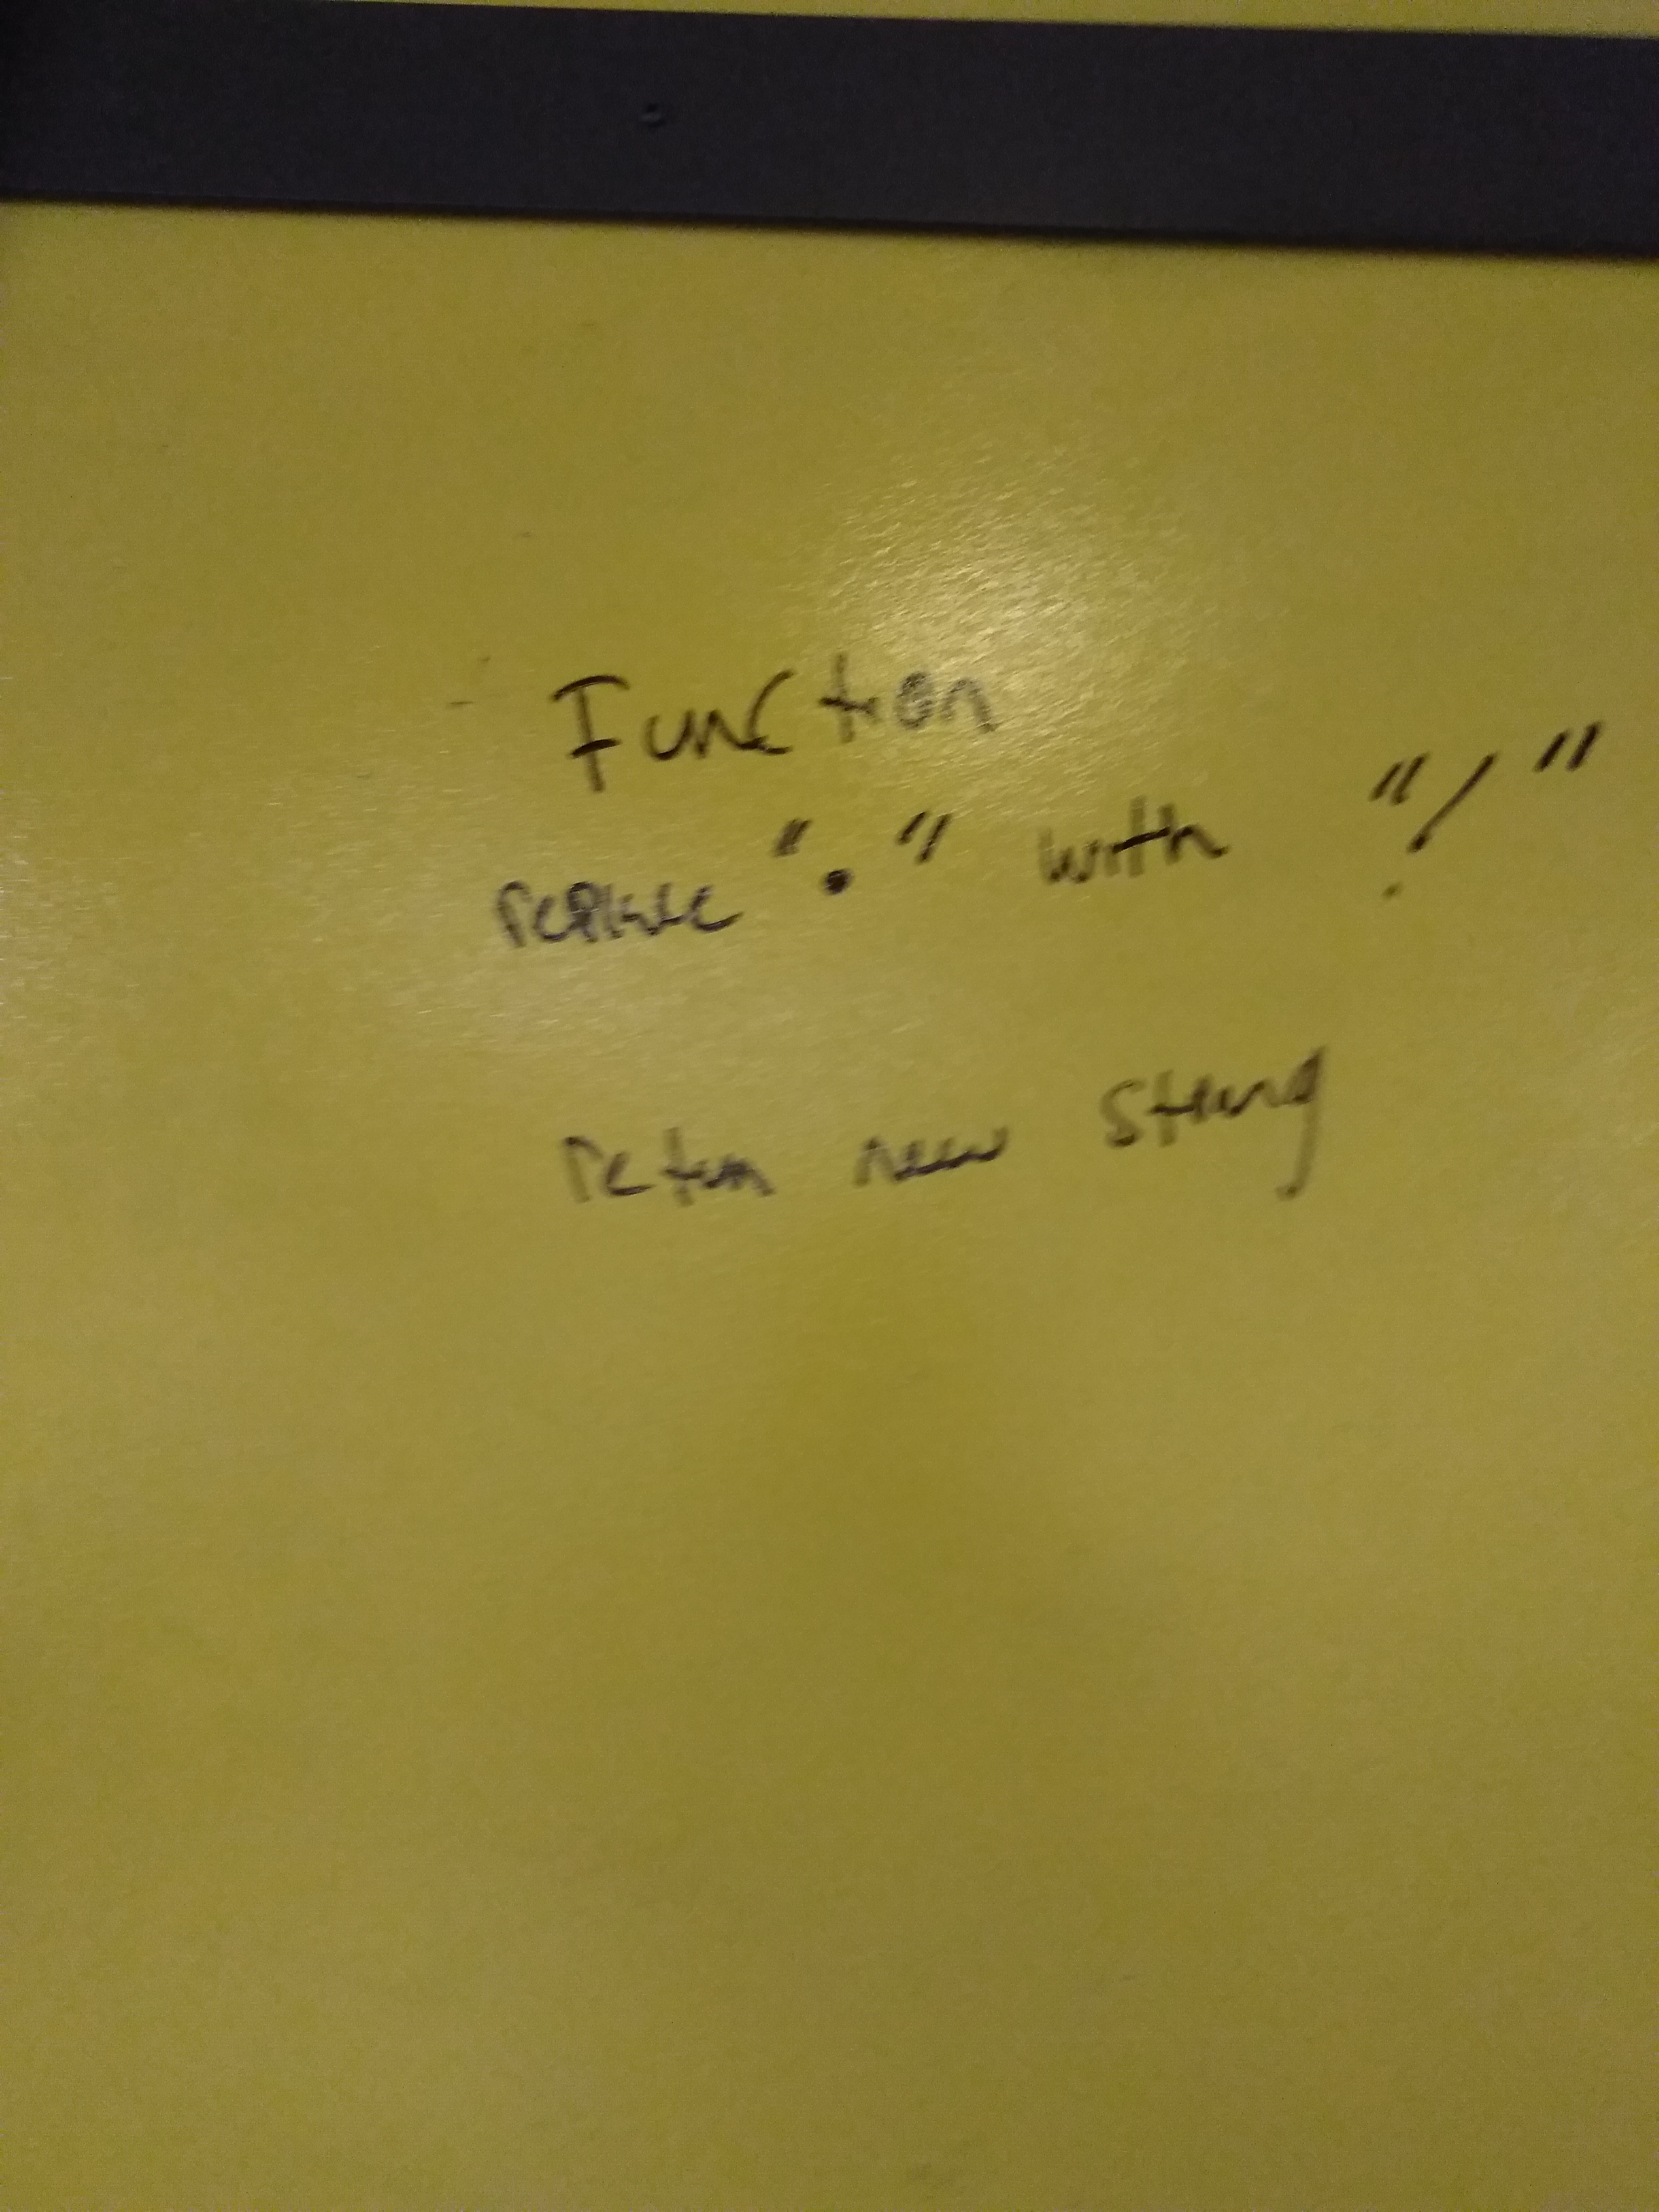 Function
replace "." with "!"
return new string